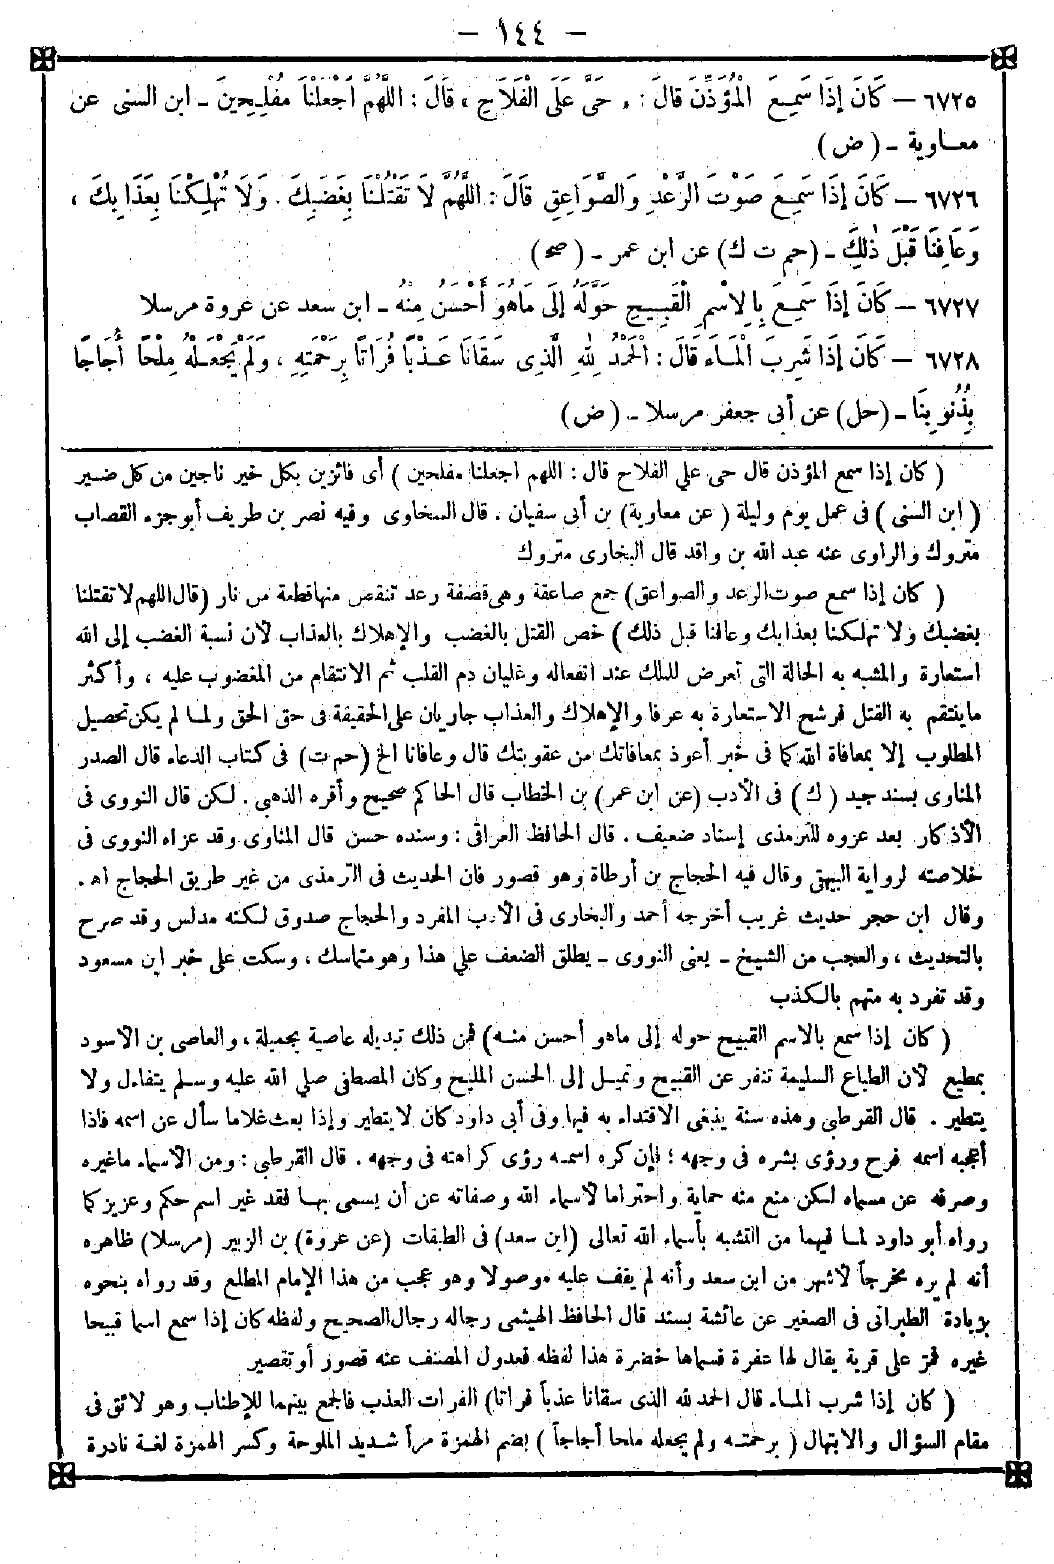 — ١٤٤ —
٦٧٢٥ — كَانَ إِذَا سَمِعَ الْمُؤَذِّنَ قَالَ : « حَيَّ عَلَى الْفَلَاحِ » قَالَ : اللَّهُمَّ اجْعَلْنَا مُفْلِحِينَ - ابن السنى عن
معاوية - (ض)
٦٧٢٦ — كَانَ إِذَا سَمِعَ صَوْتَ الرَّعْدِ وَالصَّوَاعِقِ قَالَ : اللَّهُمَّ لَا تَقْتُلْنَا بِغَضَبِكَ . وَلَا تُهْلِكْنَا بِعَذَابِكَ ،
وَعَافِنَا قَبْلَ ذٰلِكَ - (حم ت ك) عن ابن عمر - (صح)
٦٧٢٧ — كَانَ إِذَا سَمِعَ بِالِاسْمِ الْقَبِيحِ حَوَّلَهُ إِلَى مَاهُوَ أَحْسَنُ مِنْهُ - ابن سعد عن عروة مرسلا
٦٧٢٨ — كَانَ إِذَا شَرِبَ الْمَاءَ قَالَ : الْحَمْدُ لِلهِ الَّذِى سَقَانَا عَذْبًا فُرَاتًا بِرَحْمَتِهِ ، وَلَمْ يَجْعَلْهُ مِلْحًا أُجَاجًا
بِذُنُوبِنَا - (حل) عن أبى جعفر مرسلا - (ض)
( كان إذا سمع المؤذن قال حى على الفلاح قال : اللهم اجعلنا مفلحين ) أى فائزين بكل خير ناجين من كل ضير
( ابن السنى ) فى عمل يوم وليلة ( عن معاوية) بن أبى سفيان . قال السخاوى وفيه نصر بن طريف أبو جزء القصاب
متروك والراوى عنه عبد الله بن واقد قال البخارى متروك
( كان إذا سمع صوت الرعد والصواعق) جمع صاعقة وهى قصفة رعد تنقض منها قطعة من نار (قال اللهم لا تقتلنا
بغضبك ولا تهلكنا بعذابك وعافنا قبل ذلك ) خص القتل بالغضب والإهلاك بالعذاب لأن نسبة الغضب إلى الله
استعارة والمشبه به الحالة التى تعرض للملك عند انفعاله وغليان دم القلب ثم الانتقام من المغضوب عليه ، وأكثر
ماينتقم به القتل فرشح الاستعارة به عرفا والإهلاك والعذاب جاريان على الحقيقة فى حق الحق ولما لم يكن تحصيل
المطلوب إلا بمعافاة الله كما فى خبر أعوذ بمعافاتك من عقوبتك قال وعافانا الخ (حم ت) فى كتاب الدعاء قال الصدر
المناوى بسند جيد ( ك ) فى الأدب (عن ابن عمر) بن الخطاب قال الحاكم صحيح وأقره الذهبى . لكن قال النووى فى
الأذكار بعد عزوه للترمذى إسناد ضعيف . قال الحافظ العراقى : وسنده حسن قال المناوى وقد عزاه النووى فى
خلاصته لرواية البيهقى وقال فيه الحجاج بن أرطاة وهو قصور فان الحديث فى الترمذى من غير طريق الحجاج اه .
وقال ابن حجر حديث غريب أخرجه أحمد والبخارى فى الأدب المفرد والحجاج صدوق لكنه مدلس وقد صرح
بالتحديث ، والعجب من الشيخ - يعنى النووى - يطلق الضعف على هذا وهو متماسك ، وسكت على خبر ابن مسعود
وقد تفرد به متهم بالكذب
( كان إذا سمع بالاسم القبيح حوله إلى ماهو أحسن منه) فمن ذلك تبديله عاصية بجميلة ، والعاصى بن الأسود
بمطيع لأن الطباع السليمة تنفر عن القبيح وتميل إلى الحسن المليح وكان المصطفى صلى الله عليه وسلم يتفاءل ولا
يتطير . قال القرطبى وهذه سنة ينبغى الاقتداء به فيها وفى أبى داود كان لايتطير وإذا بعث غلاما سأل عن اسمه فاذا
أعجبه اسمه فرح ورؤى بشره فى وجهه ؛ فإن كره اسمه رؤى كراهته فى وجهه . قال القرطبى : ومن الأسماء ماغيره
وصرفه عن مسماه لكن منع منه حماية واحتراما لأسماء الله وصفاته عن أن يسمى بها فقد غير اسم حكم وعزيز كما
رواه أبو داود لما فيهما من التشبه بأسماء الله تعالى (ابن سعد) فى الطبقات (عن عروة) بن الزبير (مرسلا) ظاهره
أنه لم يره مخرجاً لأشهر من ابن سعد وأنه لم يقف عليه موصولا وهو عجب من هذا الإمام المطلع وقد رواه بنحوه
بزيادة الطبرانى فى الصغير عن عائشة بسند قال الحافظ الهيثمى رجاله رجال الصحيح ولفظه كان إذا سمع اسما قبيحا
غيره فمرّ على قرية يقال لها عفرة فسماها خضرة هذا لفظه فعدول المصنف عنه قصور أو تقصير
( كان إذا شرب الماء قال الحمد لله الذى سقانا عذباً فراتا) الفرات العذب فالجمع بينهما للإطناب وهو لائق فى
مقام السؤال والابتهال ( برحمته ولم يجعله ملحا أجاجاً ) بضم الهمزة مرأ شديد الملوحة وكسر الهمزة لغة نادرة